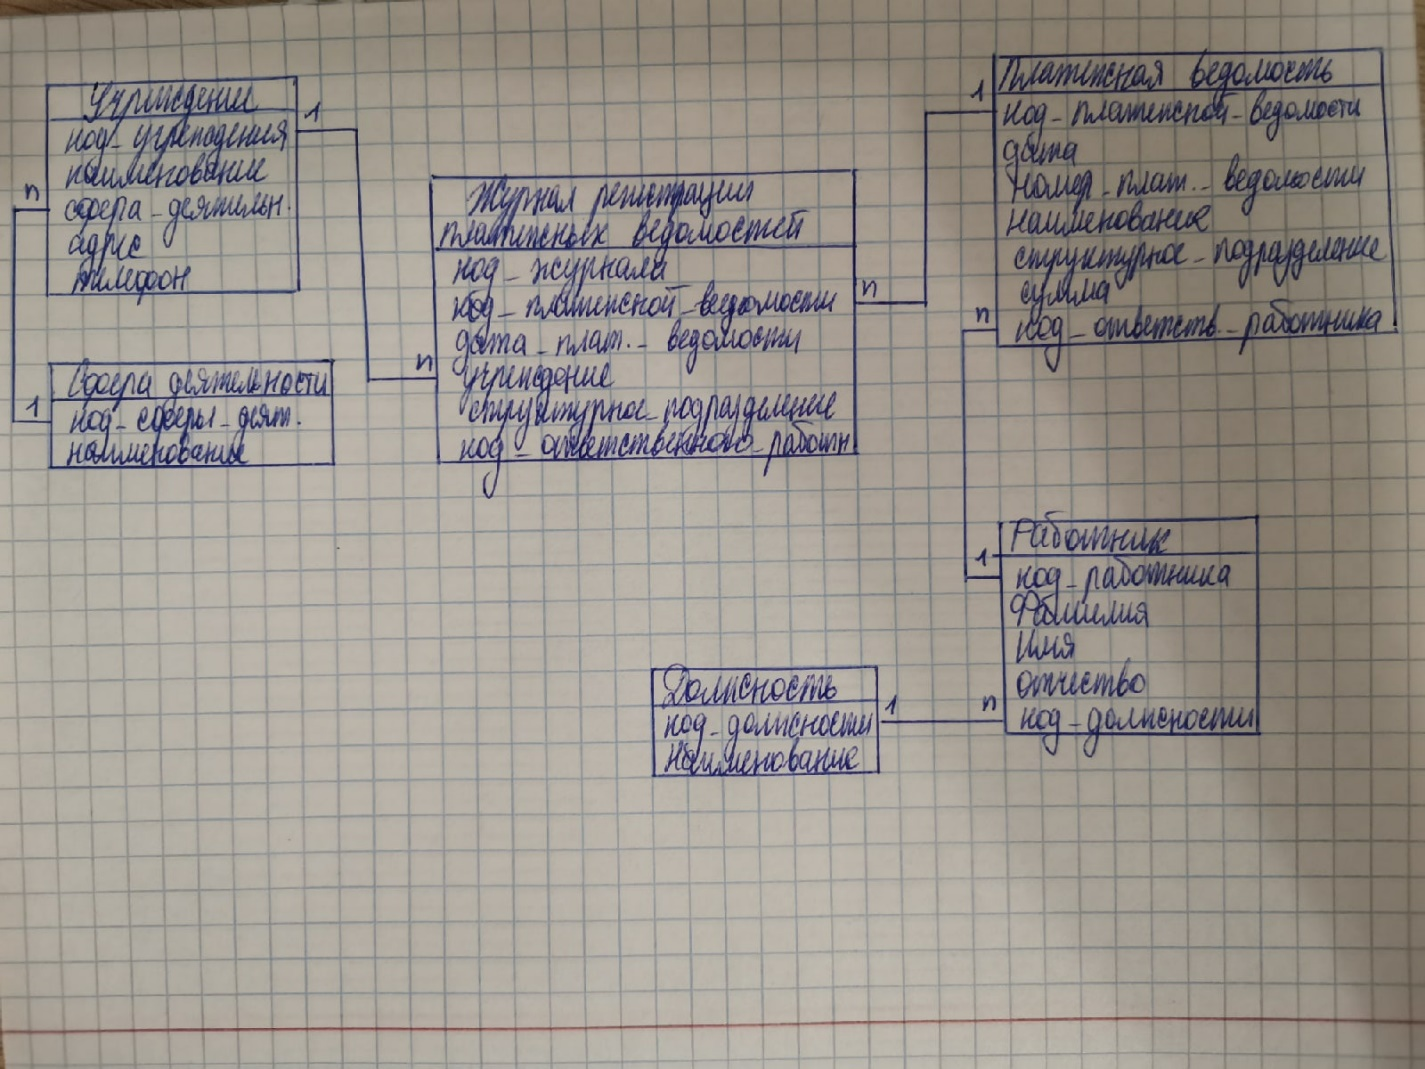 Учреждение
код_учреждения
наименование
сфера_деятельн.
адрес
телефон
1
n
Сфера деятельности
код_сферы_деят.
наименование
1
Журнал регистрации
платежных ведомостей
код_журнала
код_платежной_ведомости
дата_плат._ведомости
учреждение
структурное_подразделение
код_ответственного_работн
n
n
Платежная ведомость
код_платежной_ведомости
дата
номер_плат._ведомости
наименование
структурное_подразделение
сумма
код_ответств._работника
1
n
Работник
код_работника
Фамилия
Имя
отчество
код_должности
1
n
Должность
код_должности
Наименование
1